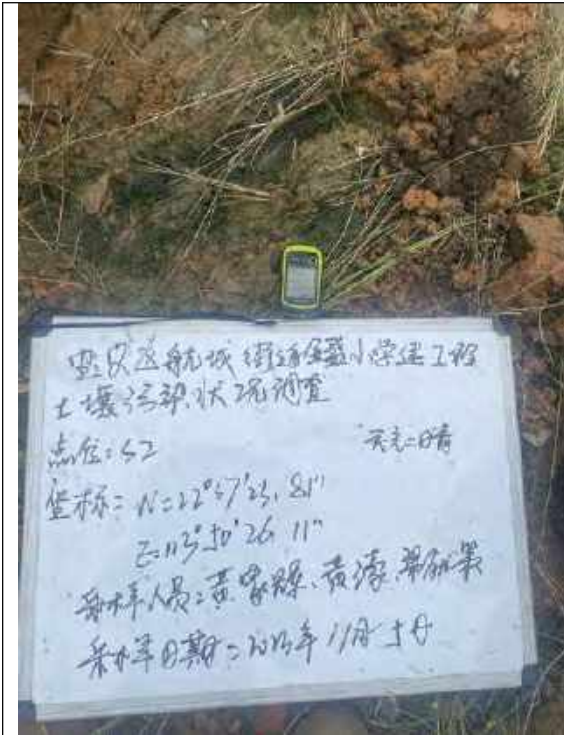 宝安区航城街道 小学建工程
土壤污染状况调查
点位:S2 天气:晴
坐标: N=22° 23.81"
E=113°50'26.11"
采样人员:黄 、黄
采样日期: 年11月5日